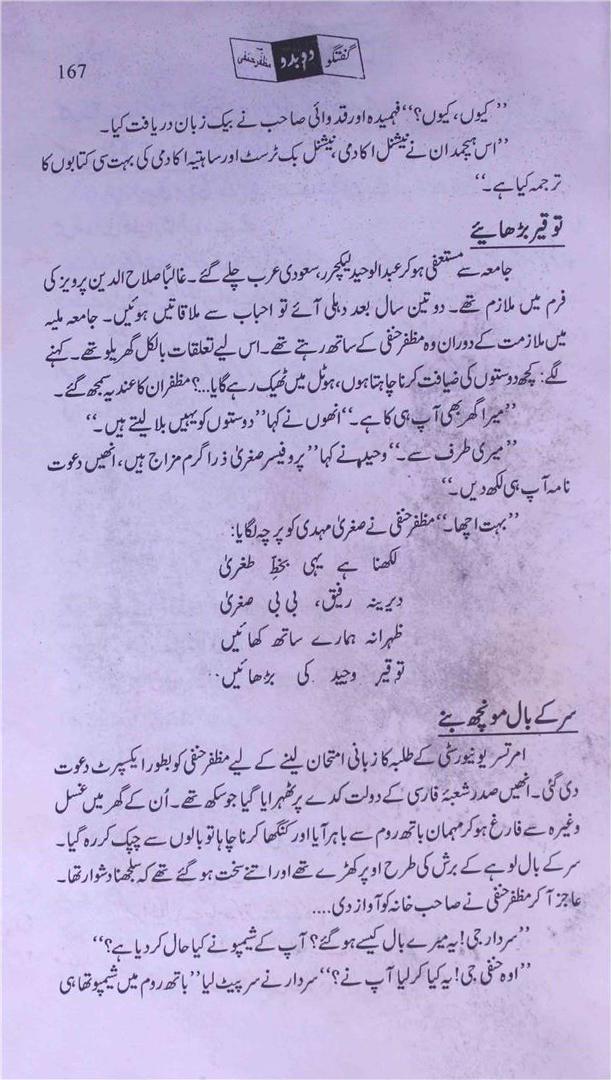 167
گفتگو دوبدو مظفر حنفی
’’کیوں، کیوں؟‘‘ فہمیدہ اور قدوائی صاحب نے بیک زبان دریافت کیا۔
’’اس ہیچمدان نے نیشنل اکادمی، نیشنل بک ٹرسٹ اور ساہتیہ اکادمی کی بہت سی کتابوں کا
ترجمہ کیا ہے۔‘‘
توقیر بڑھائیے
جامعہ سے مستعفی ہو کر عبدالوحید لیکچرر، سعودی عرب چلے گئے۔ غالباً صلاح الدین پرویز کی
فرم میں ملازم تھے۔ دو تین سال بعد دہلی آئے تو احباب سے ملاقاتیں ہوئیں۔ جامعہ ملیہ
میں ملازمت کے دوران وہ مظفر حنفی کے ساتھ رہتے تھے۔ اس لیے تعلقات بالکل گھریلو تھے۔ کہنے
لگے: کچھ دوستوں کی ضیافت کرنا چاہتا ہوں، ہوٹل میں ٹھیک رہے گا یا...؟ مظفر ان کا عندیہ سمجھ گئے۔
’’میرا گھر بھی آپ ہی کا ہے۔‘‘ انھوں نے کہا ’’دوستوں کو یہیں بلا لیتے ہیں۔‘‘
’’میری طرف سے۔‘‘ وحید نے کہا ’’پروفیسر صغریٰ ذرا گرم مزاج ہیں، انھیں دعوت
نامہ آپ ہی لکھ دیں۔‘‘
’’بہت اچھا۔‘‘ مظفر حنفی نے صغریٰ مہدی کو پرچہ لگایا:
لکھنا ہے یہی بخطِ طغریٰ
دیرینہ رفیق، بی بی صغریٰ
ظہرانہ ہمارے ساتھ کھائیں
توقیر وحید کی بڑھائیں..
سر کے بال مونچھ بنے
امرتسر یونیورسٹی کے طلبہ کا زبانی امتحان لینے کے لیے مظفر حنفی کو بطور ایکسپرٹ دعوت
دی گئی۔ انھیں صدر شعبۂ فارسی کے دولت کدے پر ٹھہرایا گیا جو سکھ تھے۔ اُن کے گھر میں غسل
وغیرہ سے فارغ ہو کر مہمان باتھ روم سے باہر آیا اور کنگھا کرنا چاہا تو بالوں سے چپک کر رہ گیا۔
سر کے بال لوہے کے برش کی طرح اوپر کھڑے تھے اور اتنے سخت ہو گئے تھے کہ سلجھنا دشوار تھا۔
عاجز آ کر مظفر حنفی نے صاحب خانہ کو آواز دی....
’’سردار جی! یہ میرے بال کیسے ہو گئے؟ آپ کے شیمپو نے کیا حال کر دیا ہے؟‘‘
’’اوہ حنفی جی! یہ کیا کر لیا آپ نے؟‘‘ سردار نے سر پیٹ لیا ’’باتھ روم میں شیمپو تھا ہی